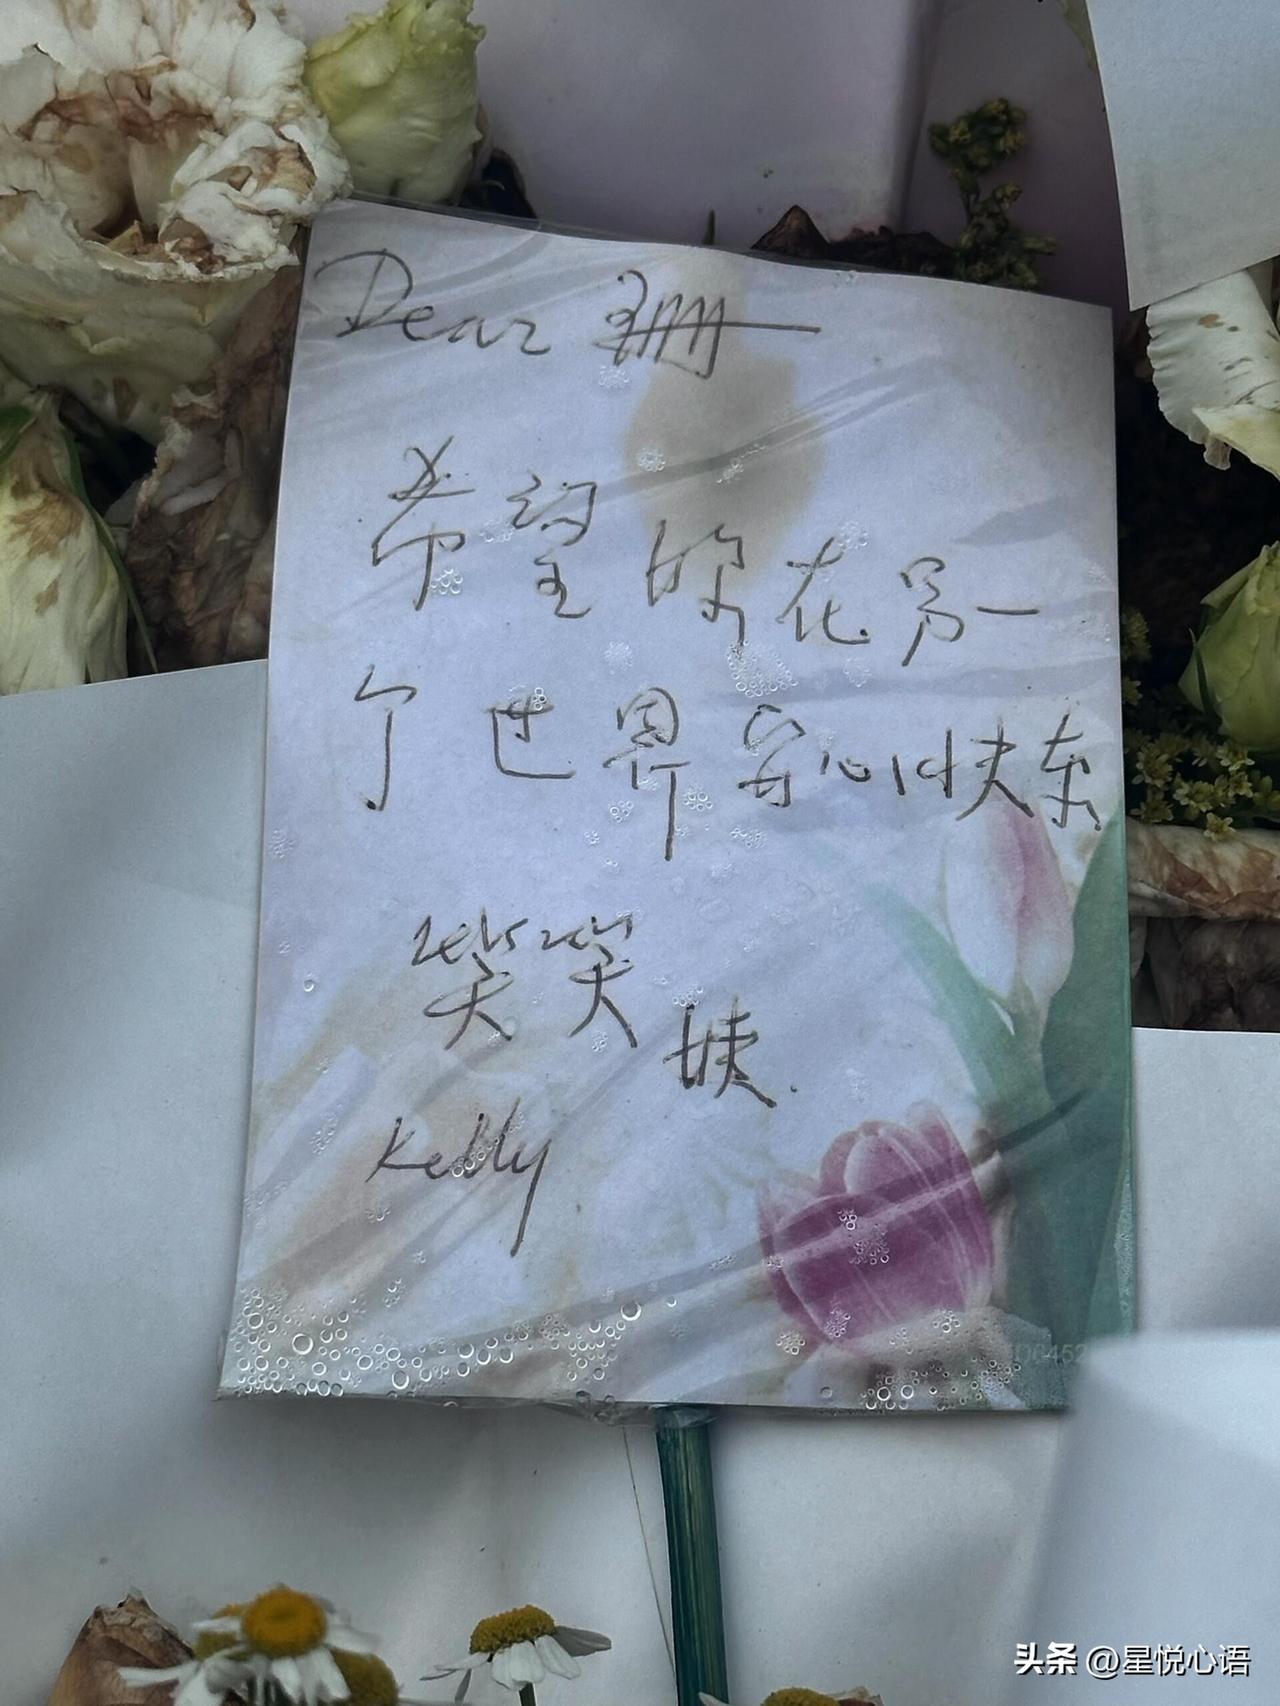 Dear 珊
希望你在另一
个世界安心快乐
笑笑
妹.
Kelly
头条 @星悦心语